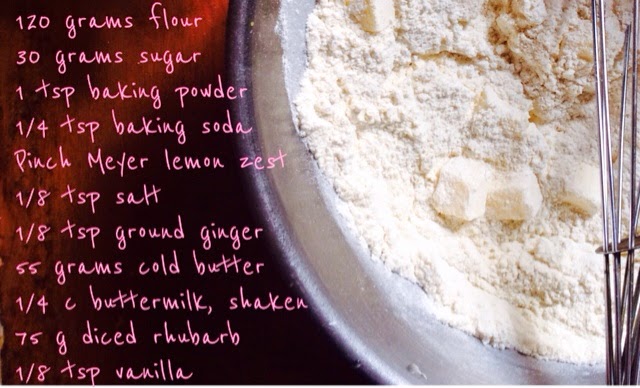 120 grams flour
30 grams sugar
1 tsp baking powder
1/4 tsp baking soda
Pinch Meyer lemon zest
1/8 tsp salt
1/8 tsp ground ginger
55 grams cold butter
1/4 c buttermilk, shaken
75 g diced rhubarb
1/8 tsp vanilla